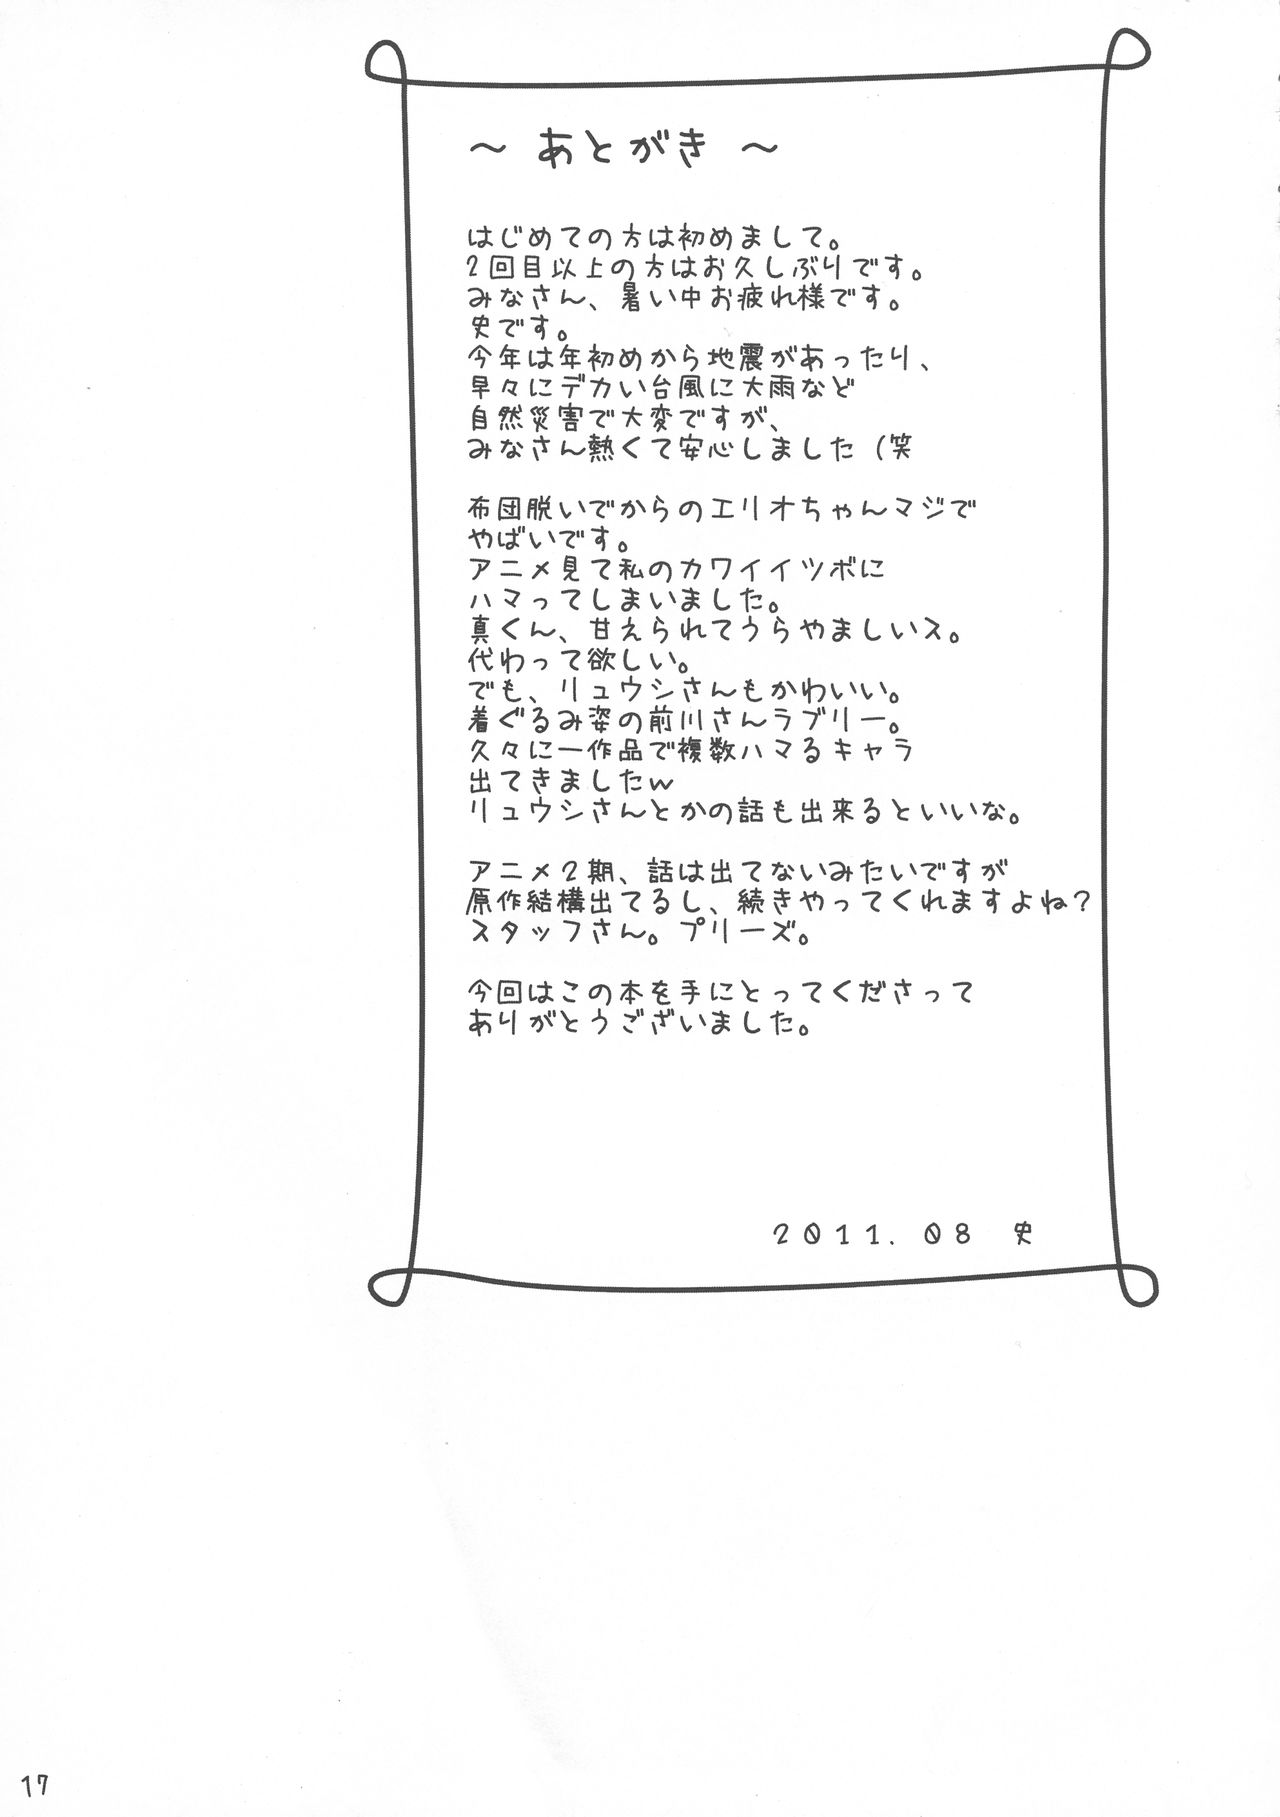 ～ あとがき ～
はじめての方は初めまして。
2回目以上の方はお久しぶりです。
みなさん、暑い中お疲れ様です。
史です。
今年は年初めから地震があったり、
早々にデカい台風に大雨など
自然災害で大変ですが、
みなさん熱くて安心しました（笑
布団脱いでからのエリオちゃんマジで
やばいです。
アニメ見て私のカワイイツボに
ハマってしまいました。
真くん、甘えられてうらやましいス。
代わって欲しい。
でも、リュウシさんもかわいい。
着ぐるみ姿の前川さんラブリー。
久々に一作品で複数ハマるキャラ
出てきましたw
リュウシさんとかの話も出来るといいな。
アニメ2期、話は出てないみたいですが
原作結構出てるし、続きやってくれますよね？
スタッフさん。プリーズ。
今回はこの本を手にとってくださって
ありがとうございました。
2011.08 史
17